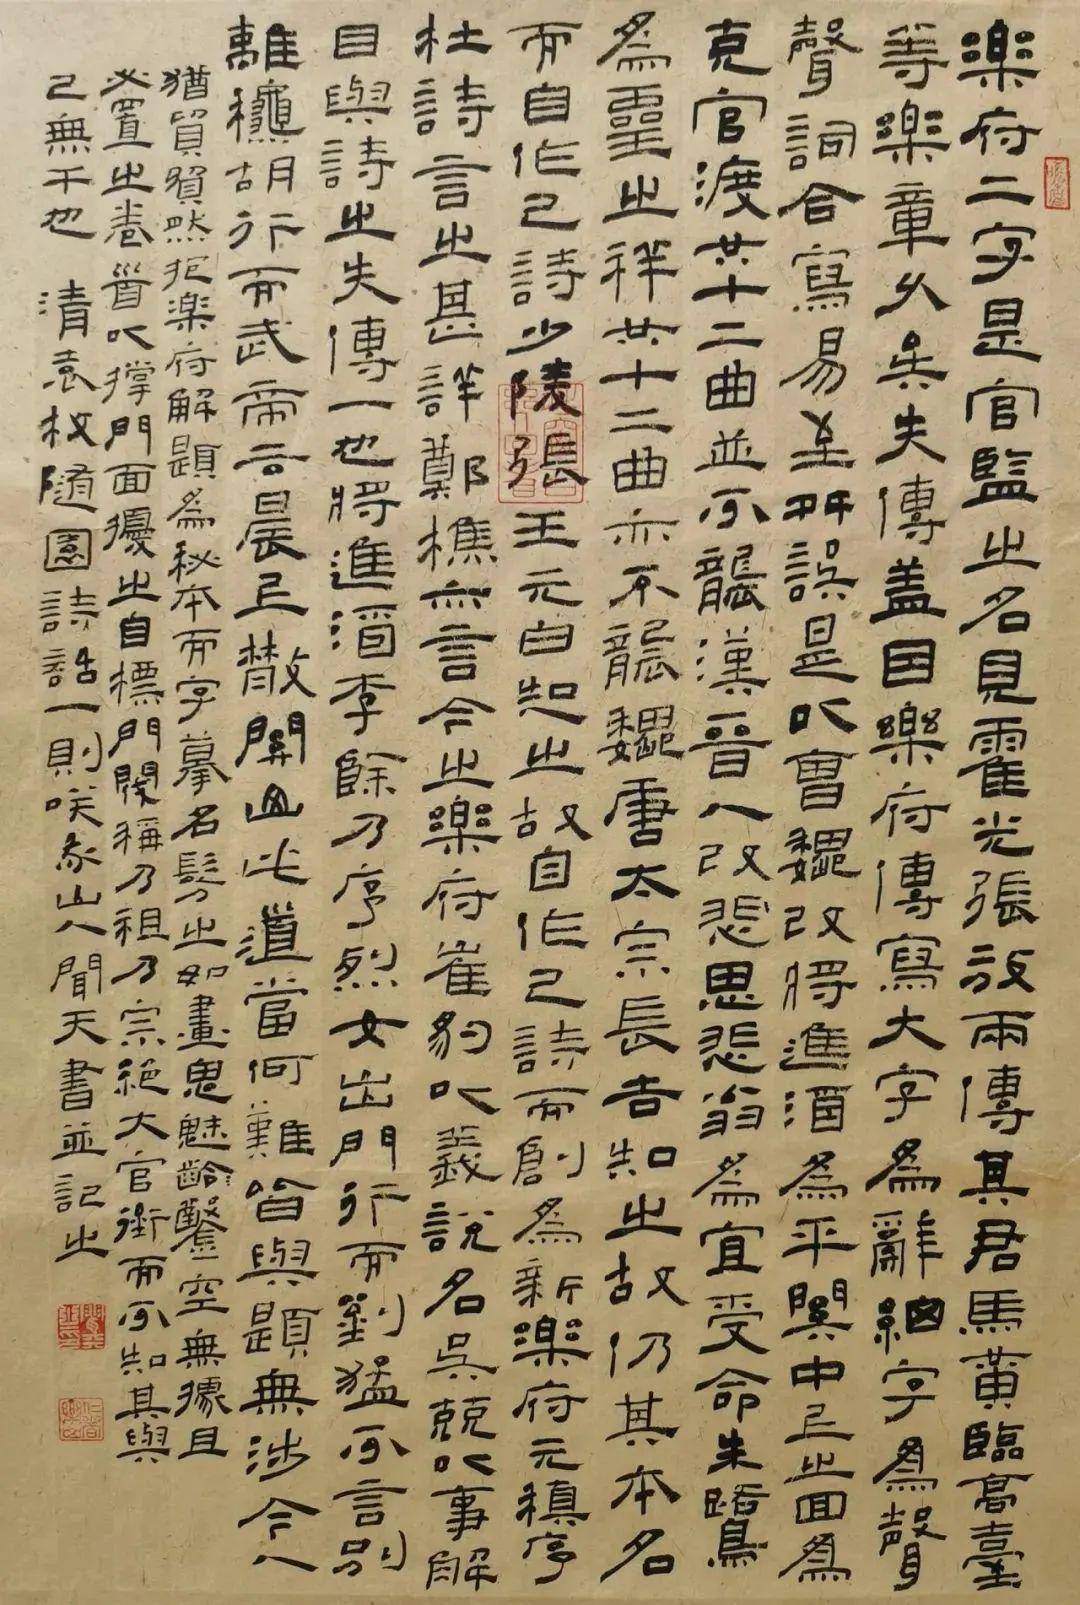 楽府二字是官監之名見霍光張放兩傳其君馬黃臨高臺
等樂章久矣失傳蓋因樂府傳寫大字為辭細字為聲
聲詞合寫易至舛誤是以曹魏改將進酒為平關中上之回為
克官渡共十二曲並不襲漢晉人改思悲翁為宣受命朱鷺
為靈之祥共十二曲亦不襲魏唐太宗長吉知之故仍其本名
而自作己詩少陵張王元白知之故自作己詩而創為新樂府元稹序
杜詩言之甚詳鄭樵亦言今之樂府崔豹以義說名吳兢以事解
目與詩之失傳一也將進酒李餘乃序烈女出門行而劉猛不言別
離穐胡行而武帝云晨上散關山此道當何難皆與題無涉今人
猶貿貿然抱樂府解題為秘本而字摹名髣之如畫鬼魅鑿空無據且
必置之卷首以撐門面擾之自標門閥稱乃祖乃宗絕大官銜而不知其與
己無干也　清袁枚隨園詩話一則 山人聞天書並記之